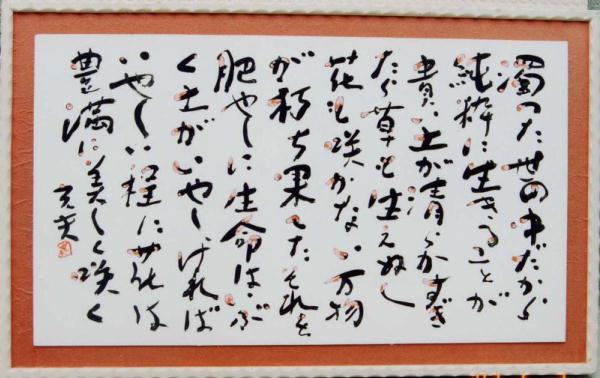 濁った世の中だから
純粋に生きることが
貴い土が清らかすぎ
たら草も生えぬし
花も咲かない万物
が朽ち果てたそれを
肥やしに生命はぶ
く土がいやしければ
いやしい程に花は
豊満に美しく咲く